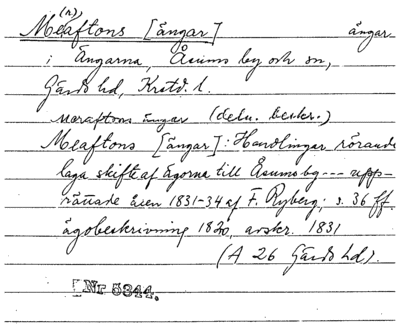 (r)
Meaftons [ängar] ängar
i Ängarna, Åsums by och sn,
Gärds hd, Krstd. l.
Meraftons ängar (detn. beskr.)
Meaftons [ängar]: Handlingar rörande
laga skifte af ägorna till Åsums by --- upp-
rättade åren 1831-34 af F. Ryberg; s. 36 ff.
ägobeskrivning 1830, avskr. 1831
(A 26 Gärds hd).
[Nr 5344.